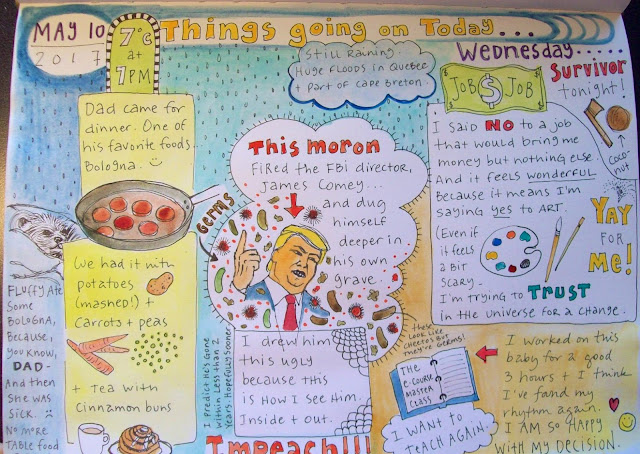 MAY 10
2017
7°C
at
7PM
Things going on Today....
Wednesday.....
Still Raining.
Huge Floods in Quebec
+ part of Cape Breton.
Dad came for
dinner. One of
his favorite foods.
Bologna.
We had it with
potatoes
(mashed!) +
Carrots + peas
+ Tea with
Cinnamon buns
FLUFFY Ate
Some
BOLOGNA,
Because,
you know,
DAD-
And then
She was
Sick.
No more
TABLE food
This moron
FiRed the FBi director,
James Comey...
and dug
himself
deeper in
his own
grave.
GERMS
I drew him
this ugly
because this
is How I See Him.
Inside + out.
I Predict He's Gone
Within Less than 2
Years. Hopefully Sooner
Impeach!!!
JOB $ JOB
I said NO to a job
that would bring me
money but nothing else.
And it feels wonderful
Because it means I'm
saying yes to ART.
(Even if
it feels
a Bit
Scary-
I'm trying to TRUST
in the universe for a change.
Survivor
tonight!
Coco-
nut
YAY
FOR
Me!
these
Look Like
cheetos But
They're GERMS!
THE
e-course
Master
Class
I WANT to
TeacH AGAIN.
I worked on this
baby for a good
3 hours + I think
I've found my
rhythm again.
I AM SO HAPPY
WITH MY DECISION.